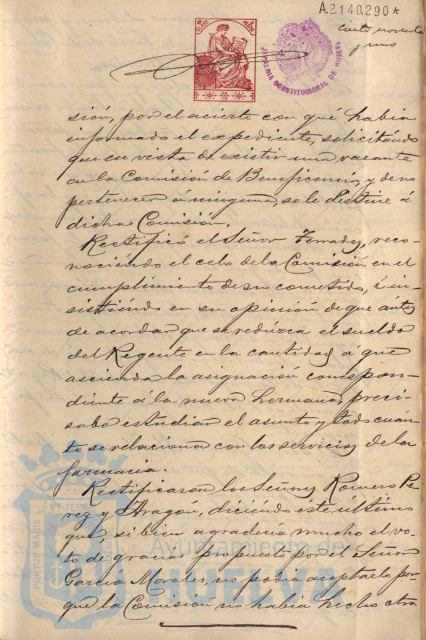 A.2.140.290*
ciento noventa
y uno
ALCALDIA CONSTITUCIONAL DE HUELVA
sión, por el acierto con que habia
informado el expediente, solicitando
que en vista de existir una vacante
en la Comisión de Beneficencia, y de no
pertenecer á ninguna, se le destine á
dicha Comisión.
Rectificó el Señor Terrades, reco-
nociendo el celo de la Comisión en el
cumplimiento de su cometido, é in-
sistiendo en su opinión de que antes
de acordar que se reduzca el sueldo
del Regente en la cantidad á que
ascienda la asignación correspon-
diente á la nueva hermana, preci-
saba estudiar el asunto y todo cuan-
to se relaciona con los servicios de la
farmacia.
Rectificaron los Señores Romero Pe-
rez y Aragon, diciendo este último
que, si bien agradecia mucho el vo-
to de gracias propuesto por el Señor
Garcia Morales, no podia aceptarlo por-
que la Comisión no habia hecho otra
PORTUS MARIS
Ayuntamiento de
HUELVA